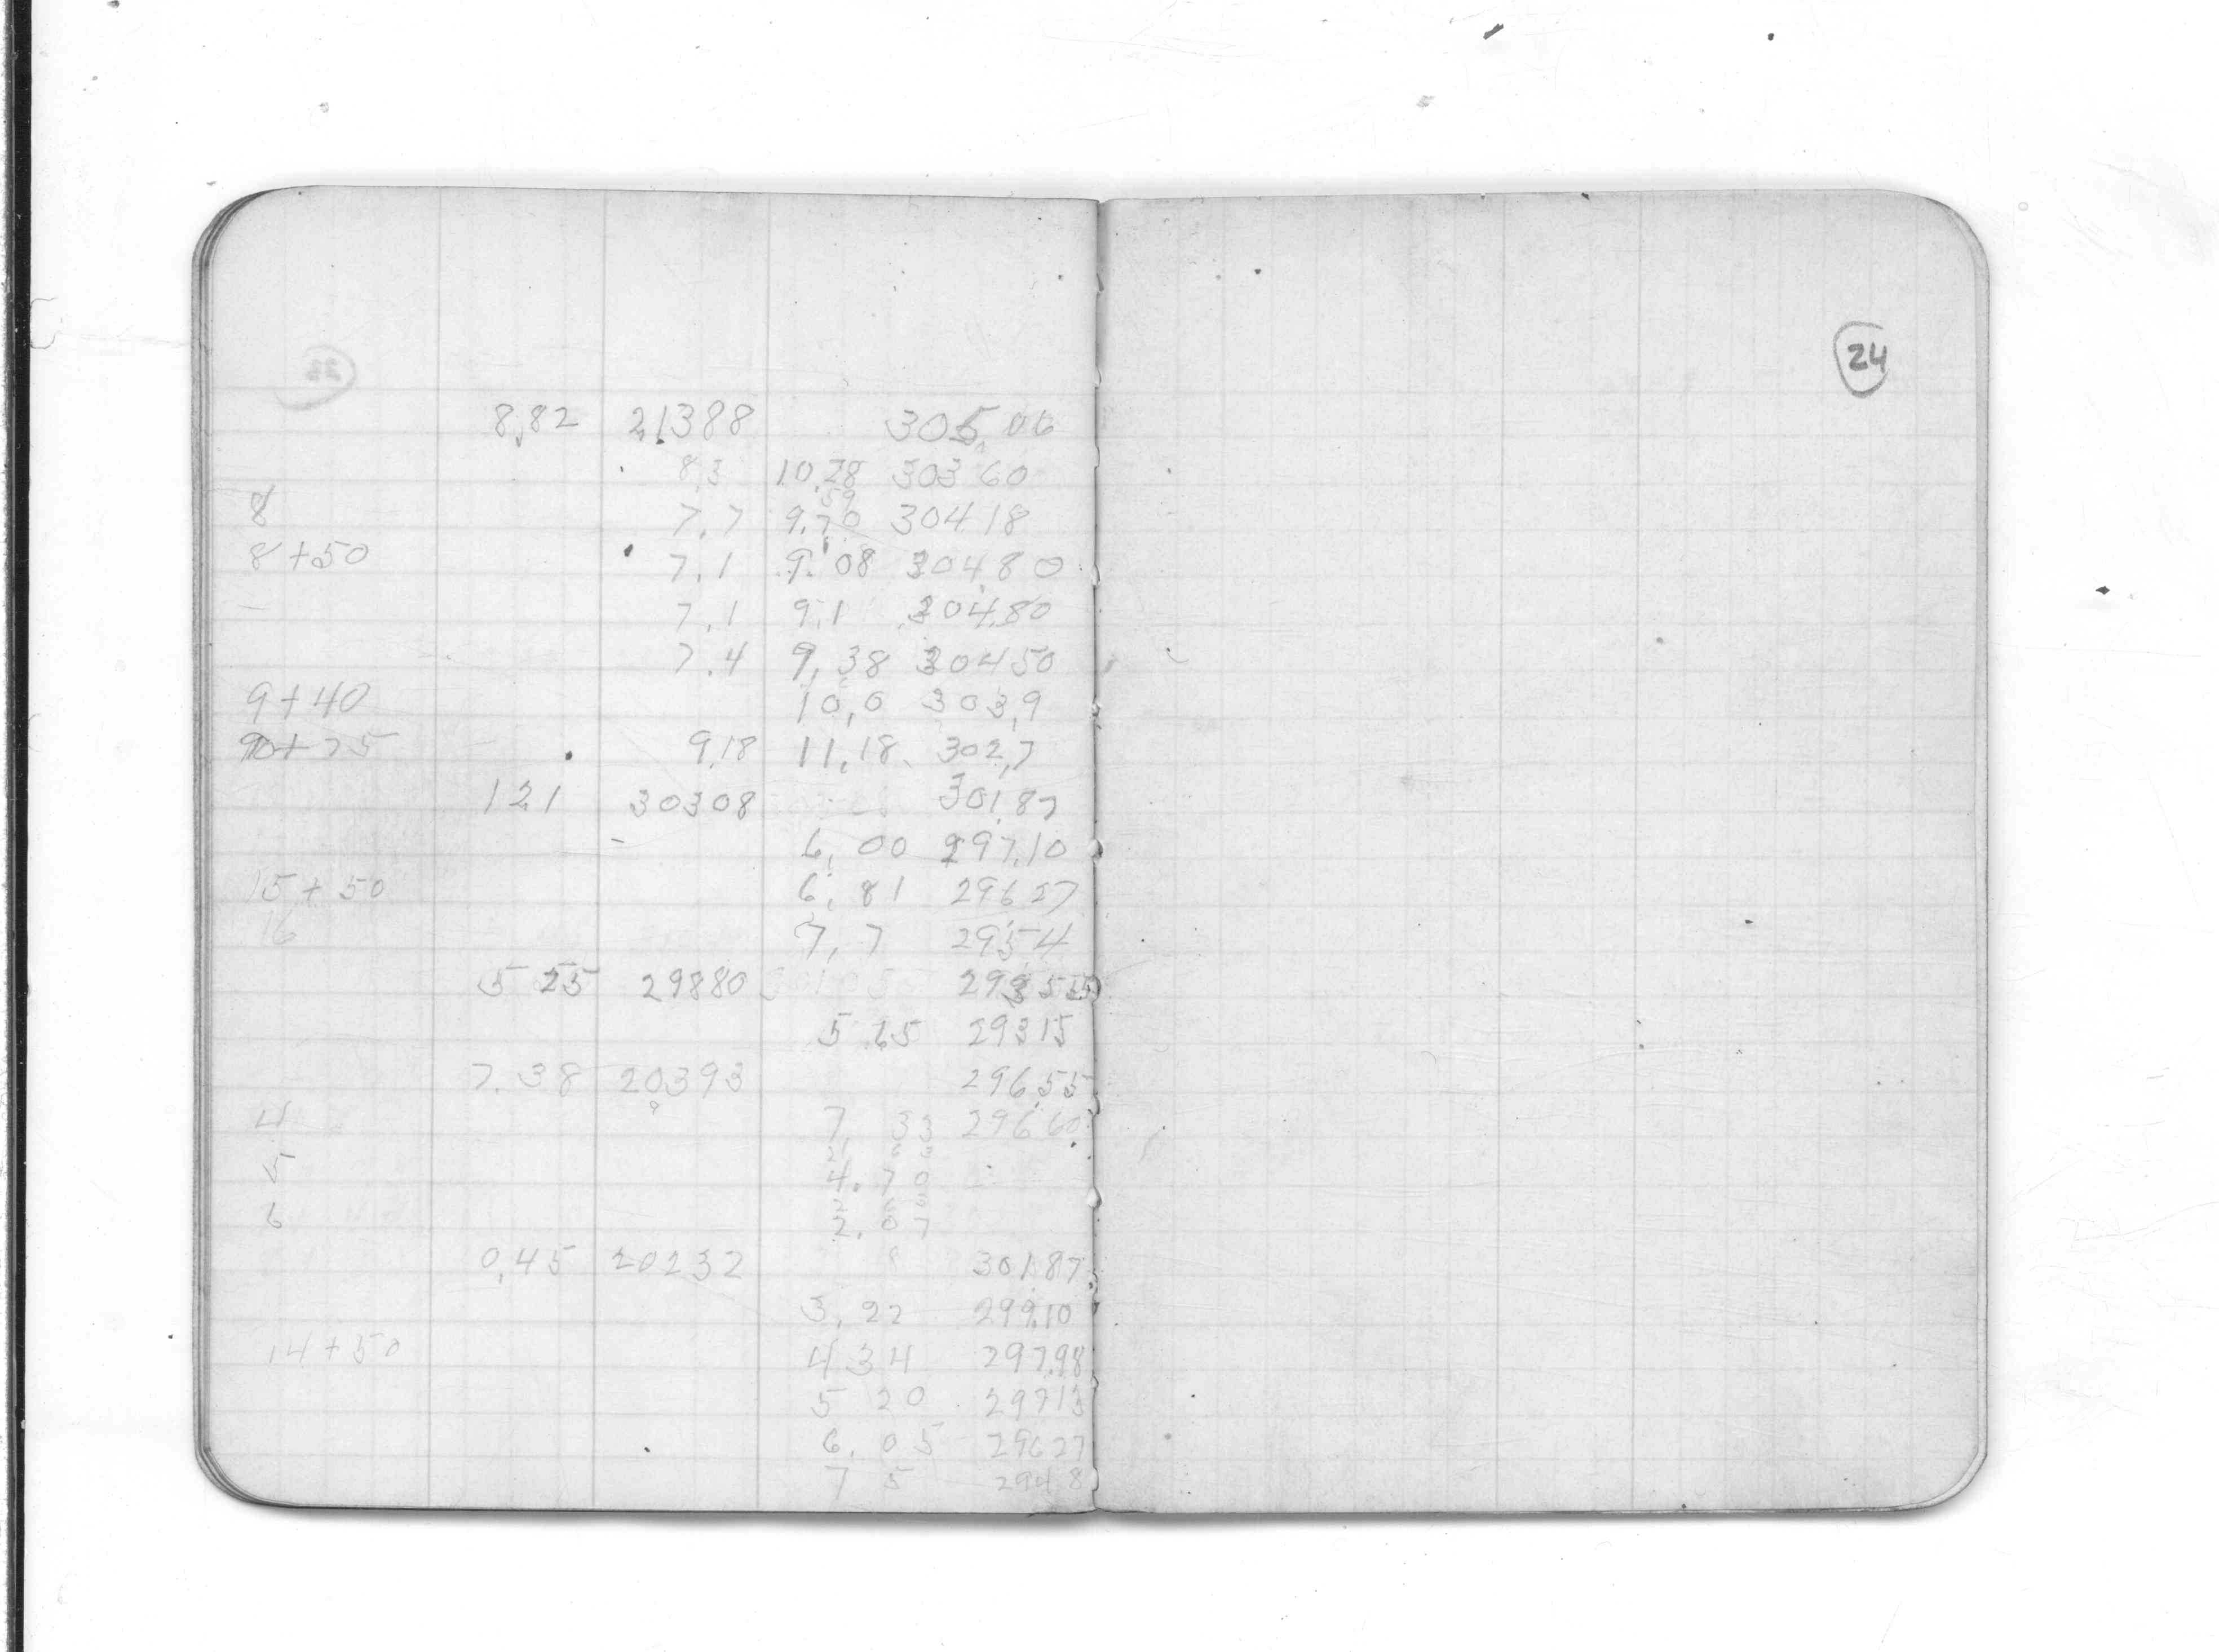 24
8,82 21388 305,06
8.3 10,28 303 60
8 7.7 9.70 304 18
8+50 7.1 9.08 304,80
7.1 9.1 304.80
7.4 9,38 304 50
9+40 10,0 303,9
+75 9.18 11,18 302,7
1 21 30308 301,87
6, 00 297.10
15+50 6, 81 296 27
16 7,7 295 4
5 25 29880
5 65 293 15
7.38 20393 296.55
4 7, 33 296 60
5 4.70
6 2.07
0,45 20232 301.87
3, 22 299.10
14+50 4 34 297.98
5 20 297 13
6, 05 296 27
7 5 294 8